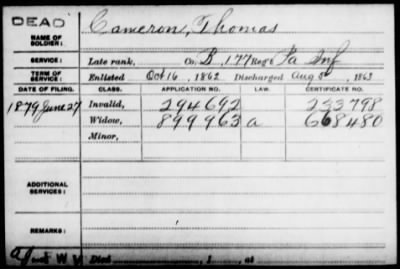 DEAD
NAME OF SOLDIER: Cameron, Thomas
SERVICE: Late rank, Co. B, 177 Reg't Pa Inf
TERM OF SERVICE: Enlisted Oct 16, 1862 Discharged Aug 5, 1863
DATE OF FILING. CLASS. APPLICATION NO. LAW. CERTIFICATE NO.
1879 June 27 Invalid, 294692 233798
Widow, 899963 a 668480
Minor,
ADDITIONAL SERVICES:
REMARKS:
Died , 1 , at